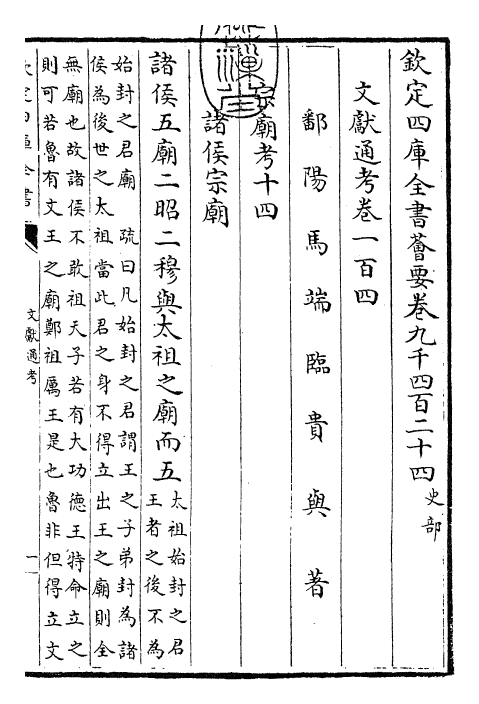 欽定四庫全書薈要卷九千四百二十四史部
文獻通考卷一百四
鄱陽馬端臨貴與著
宗廟考十四
諸侯宗廟
諸侯五廟二昭二穆與太祖之廟而五
太祖始封之君
王者之後不為
始封之君廟 疏曰凡始封之君謂王之子弟封為諸
侯為後世之太祖當此君之身不得立出王之廟則全
無廟也故諸侯不敢祖天子若有大功德王特命立之
則可若魯有文王之廟鄭祖厲王是也魯非但得立文
欽定四庫全書
文獻通考
一